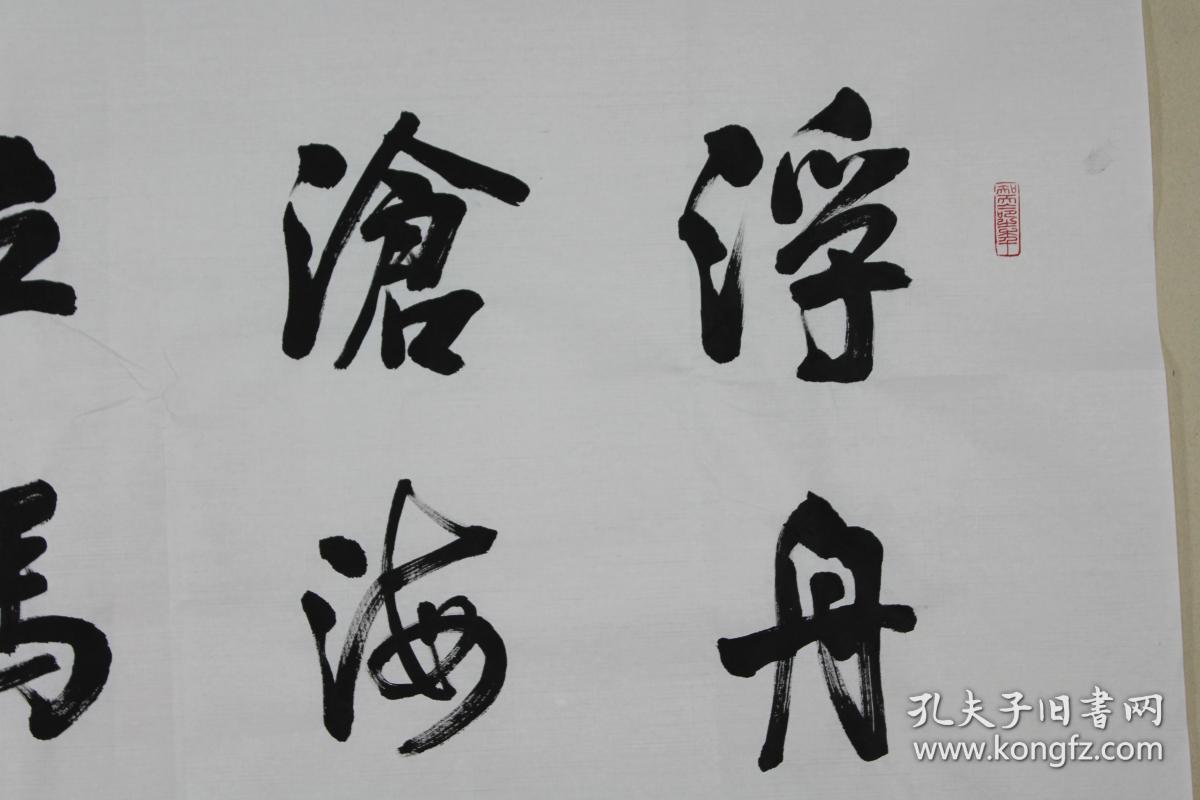 浮舟
滄海
立馬
孔夫子旧書网
www.kongfz.com